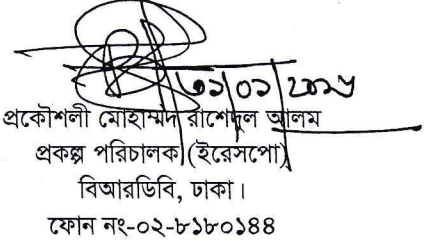 ৩১/০১/২০১৮
প্রকৌশলী মোহাম্মদ রাশেদুল আলম
প্রকল্প পরিচালক (ইরেসপো)
বিআরডিবি, ঢাকা।
ফোন নং-০২-৮১৮০১৪৪